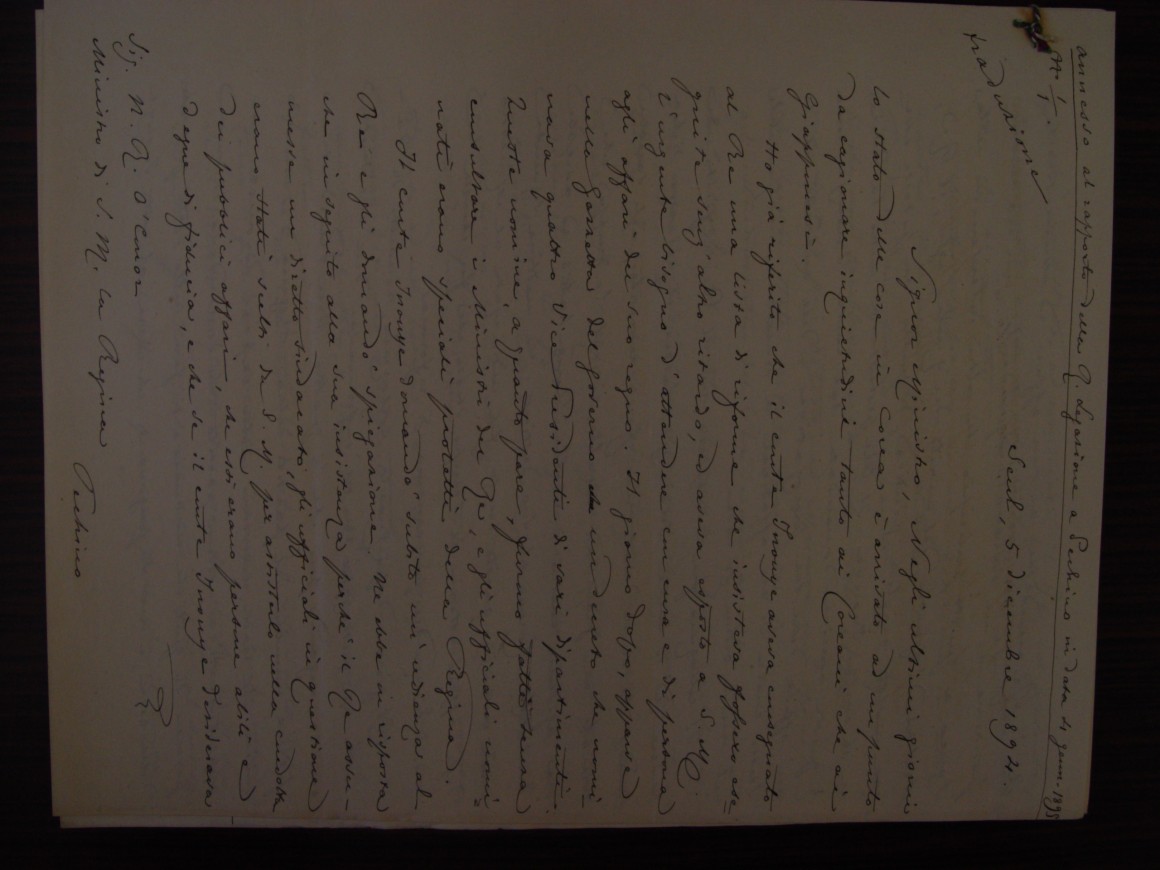 annesso al rapporto della R. Legazione a Pechino in data 4 genn. 1895
N. 1.
traduzione
Seul, 5 dicembre 1894.
Signor Ministro, Negli ultimi giorni
lo stato delle cose in Corea è arrivato ad un punto
da cagionare inquietudini tanto ai Coreani che ai
Giapponesi.
Ho già riferito che il conte Inouye aveva consegnato
al Re una lista di riforme che insisteva fossero ese-
guite senz'altro ritardo, ed aveva esposto a S. M.
l'urgente bisogno d'attendere con cura e di persona
agli affari del suo regno. Il giorno dopo, apparve
nella Gazzetta del governo un decreto che nomi-
nava quattro Vice Presidenti di vari dipartimenti.
Queste nomine, a quanto pare, furono fatte senza
consultare i Ministri del Re, e gli ufficiali nomi=
nati erano speciali protetti della Regina.
Il conte Inouye domandò subito un'udienza al
Re e gli domandò spiegazione. Ne ebbe in risposta
che in seguito alla sua insistenza perchè il Re assu-
messe un diretto sindacato, gli ufficiali in questione
erano stati scelti da S. M. per assisterlo nella condotta
dei pubblici affari, che essi erano persone abili e
degne di fiducia, e che se il conte Inouye desiderava
Sig. N. R. O'Conor
Ministro di S. M. la Regina
Pechino